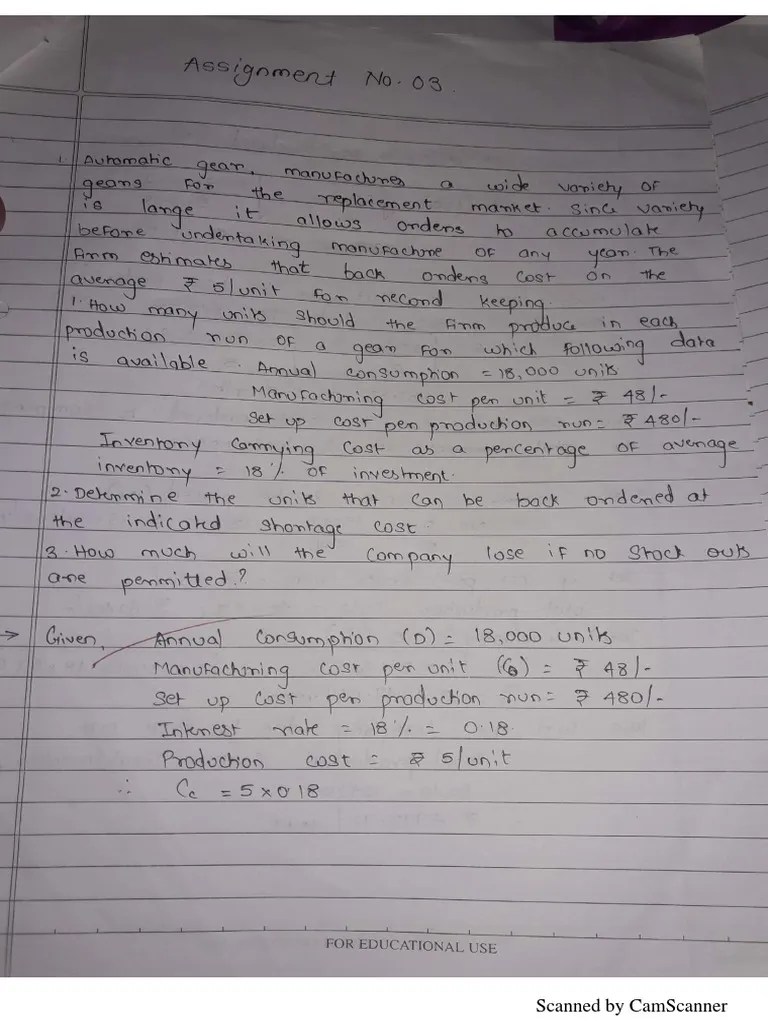 Assignment No. 03.
1. Automatic gear, manufactures a wide variety of
gears for the replacement market. Since variety
is large it allows orders to accumulate
before undertaking manufacture of any year. The
firm estimates that back orders cost on the
average ₹ 5/unit for record keeping.
1. How many units should the firm produce in each
production run of a gear for which following data
is available. Annual consumption = 18,000 units
Manufacturing cost per unit = ₹ 48/-
Set up cost per production run = ₹ 480/-
Inventory carrying cost as a percentage of average
inventory = 18% of investment.
2. Determine the units that can be back ordered at
the indicated shortage cost
3. How much will the company lose if no stock outs
are permitted?
→ Given, Annual Consumption (D) = 18,000 units
Manufacturing cost per unit = ₹ 48/-
Set up cost per production run = ₹ 480/-
Interest rate = 18% = 0.18.
Production cost = ₹ 5/unit
∴ Cc = 5 × 0.18
FOR EDUCATIONAL USE
Scanned by CamScanner